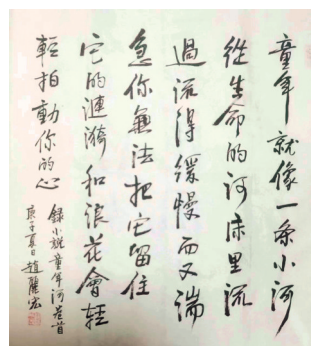 童年就像一条小河
從生命的河床里流
過流得緩慢而又湍
急你無法把它留住
它的漣漪和浪花會輕
輕拍動你的心
錄小說童年河卷首
庚子夏日趙麗宏